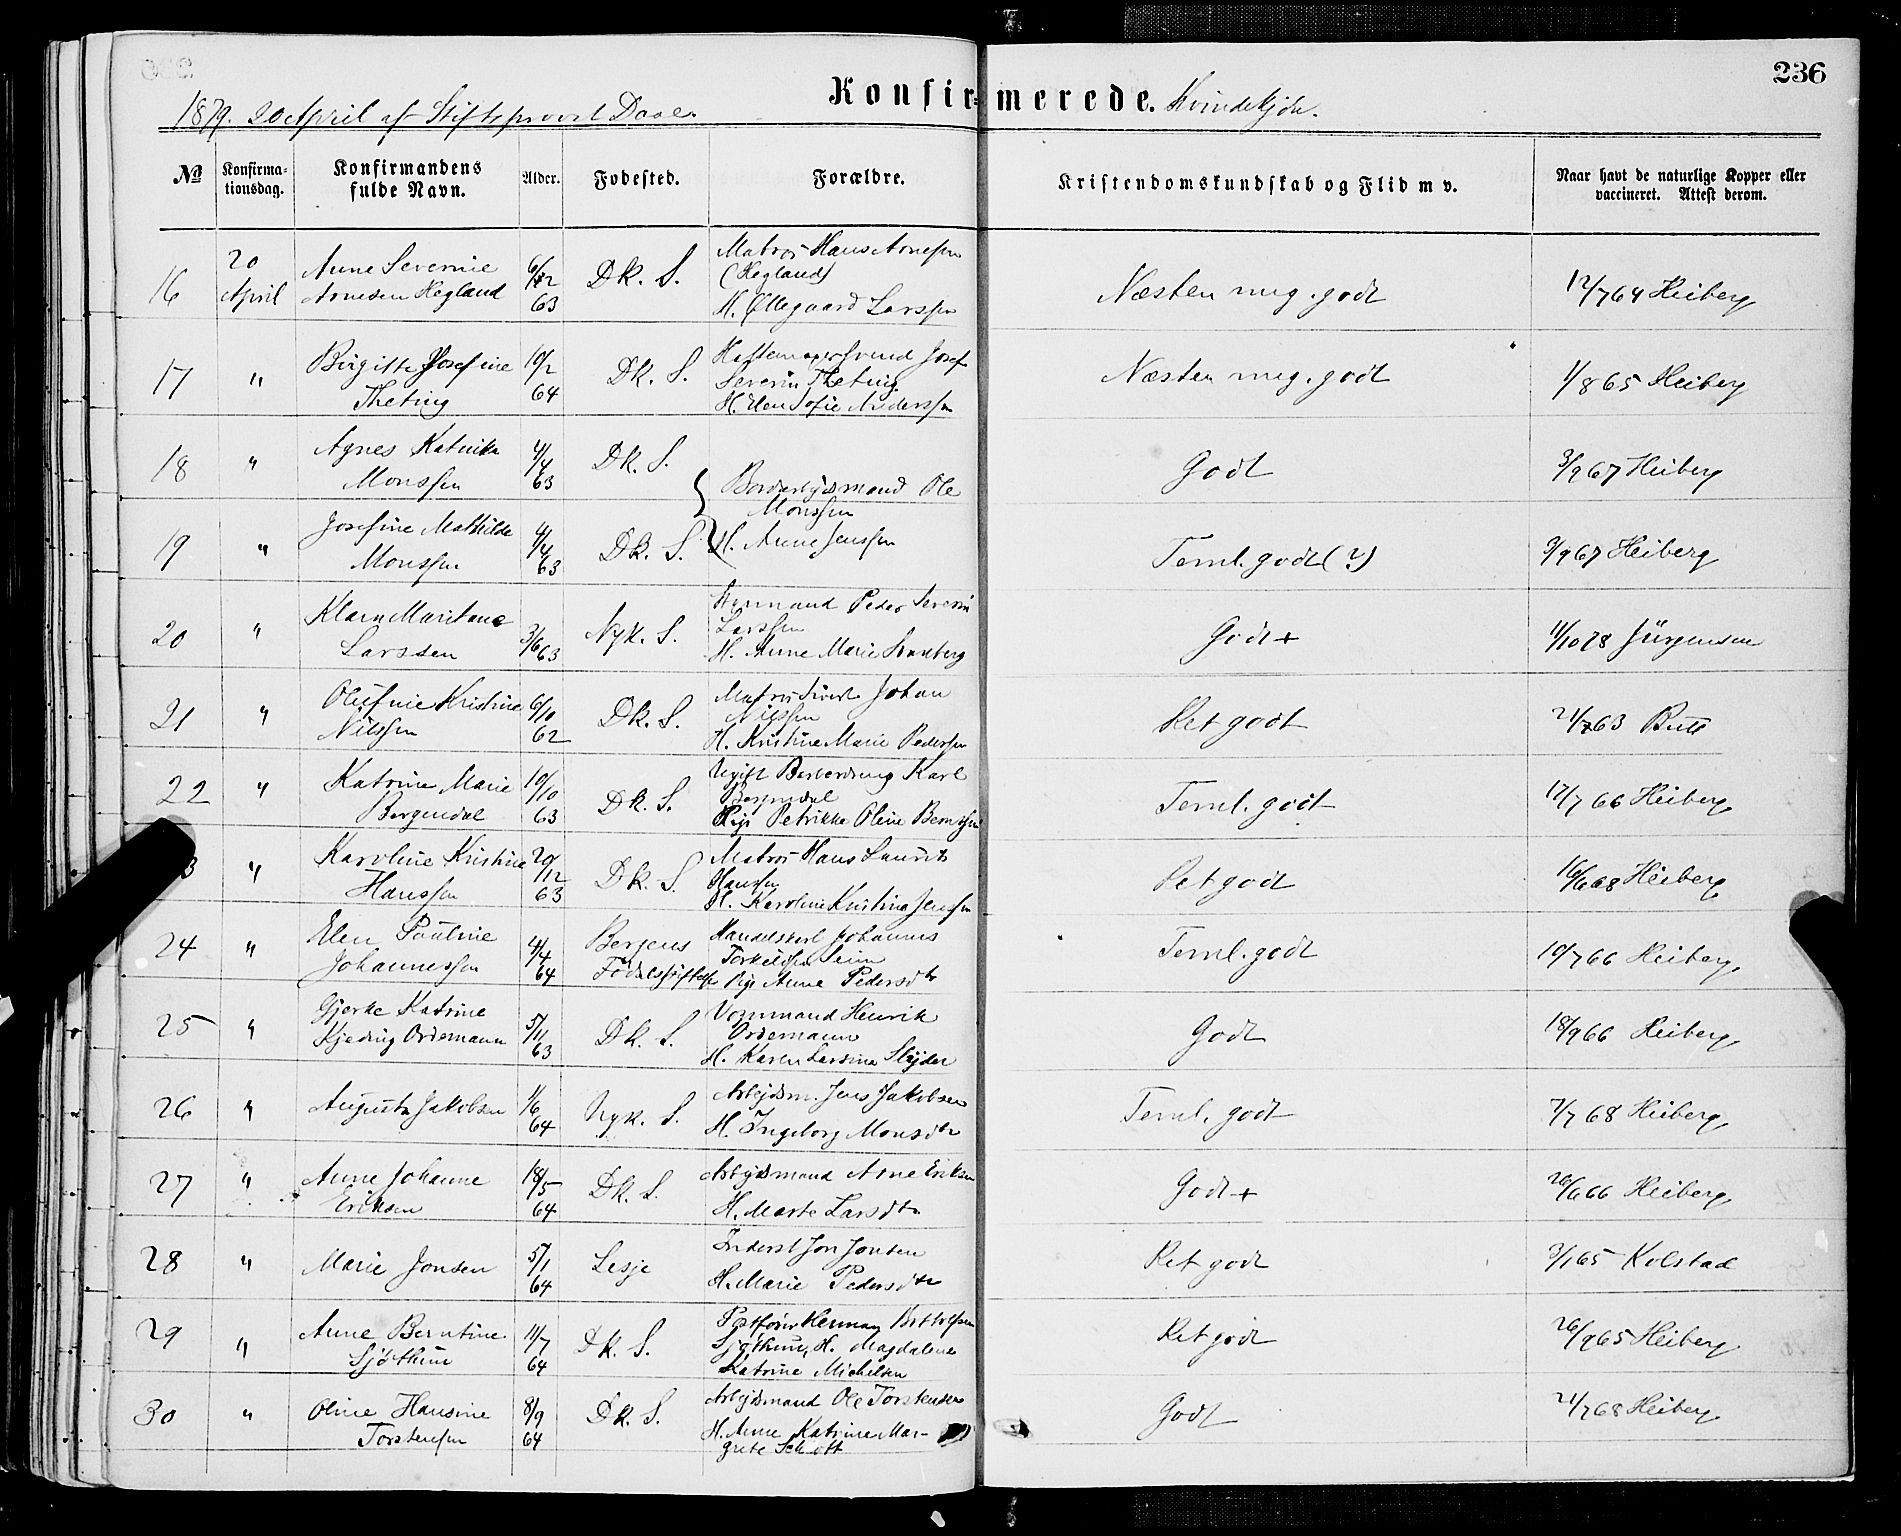 236
Konfirmerede. Kvindekjön.
1879. 20 April af Stiftsprovst Daae.
No
Konfirmationsdag.
Konfirmandens fulde Navn.
Alder.
Fødested.
Forældre.
Kristendomskundskab og Flid m v.
Naar havt de naturlige Kopper eller
vaccineret. Attest derom.
16 20 April Anne Severine Arnesen Hegland 6/12 63 Dk. S. Matros Hans Arnessen (Hegland) H. Ollegaard Larssen Næsten meg. godt 12/7 64 Heiberg
17 " Birgitte Josefine Theting 10/2 64 Dk. S. Hattemagersvend Josef Severin Theting H. Elen Sofie Anderssen Næsten meg. godt 1/8 65 Heiberg
18 " Agnes Katrika Monssen 4/4 63 Dk. S. Bordarbejdsmand Ole Monssen Godt 3/9 67 Heiberg
19 " Josefine Mathilde Monssen 4/4 63 Dk. S. H. Anne Jenssen Teml. godt (?) 3/9 67 Heiberg
20 " Klara Maritane Larssen 3/6 63 Nyk. S. Peder Severin Larssen H. Anne Marie Godt + 11/10 78 Jürgensen
21 " Olefine Kristine Nilssen 6/10 62 Dk. S. Matros Sivert Johan Nilssen H. Kristine Marie Pederssen Ret godt 21/7 63
22 " Katrine Marie Bergendal 10/10 63 Dk. S. Ugift Karl Bergendal Pige Petrikke Oline Berntsen Teml. godt 17/7 66 Heiberg
" Karoline Kristine Hanssen 29/12 63 Dk. S. Matros Hans Laurits Hanssen H. Karoline Kristina Jenssen Ret godt 16/6 68 Heiberg
24 " Elen Pauline Johannessen 4/4 64 Bergens Fødselsstiftelse Handelskarl Johannes Torkildsen Pige Anne Pedersdtr Teml. godt 10/7 66 Heiberg
25 " Gjerke Katrine Kjeding Ordemann 5/11 63 Dk. S. Vognmand Henrik Ordemann H. Karen Larsina Slyder Godt 18/9 66 Heiberg
26 " Augusta Jakobsen 1/6 64 Nyk. S. Arbejdsm. Jens Jakobsen H. Ingeborg Monsdtr Teml. godt 7/7 68 Heiberg
27 " Anne Johanne Eriksen 18/5 64 Dk. S. Arbejdsmand Arne Eriksen H. Marte Larsdtr Godt + 26/6 66 Heiberg
28 " Marie Jonsen 5/1 64 Lesje Inderst Jon Jonsen H. Marie Pedersdtr Ret godt 3/1 65 Kolstad
29 " Anne Berntine Sjöthun 11/7 64 Dk. S. Herman Sjöthun, H. Magdalene Katrine Michelsen Ret godt 26/9 65 Heiberg
30 " Oline Hansine Torstensen 8/9 64 Dk. S. Arbejdsmand Ole Torstensen H. Anne Katrine Margrete Schott Godt 21/7 68 Heiberg